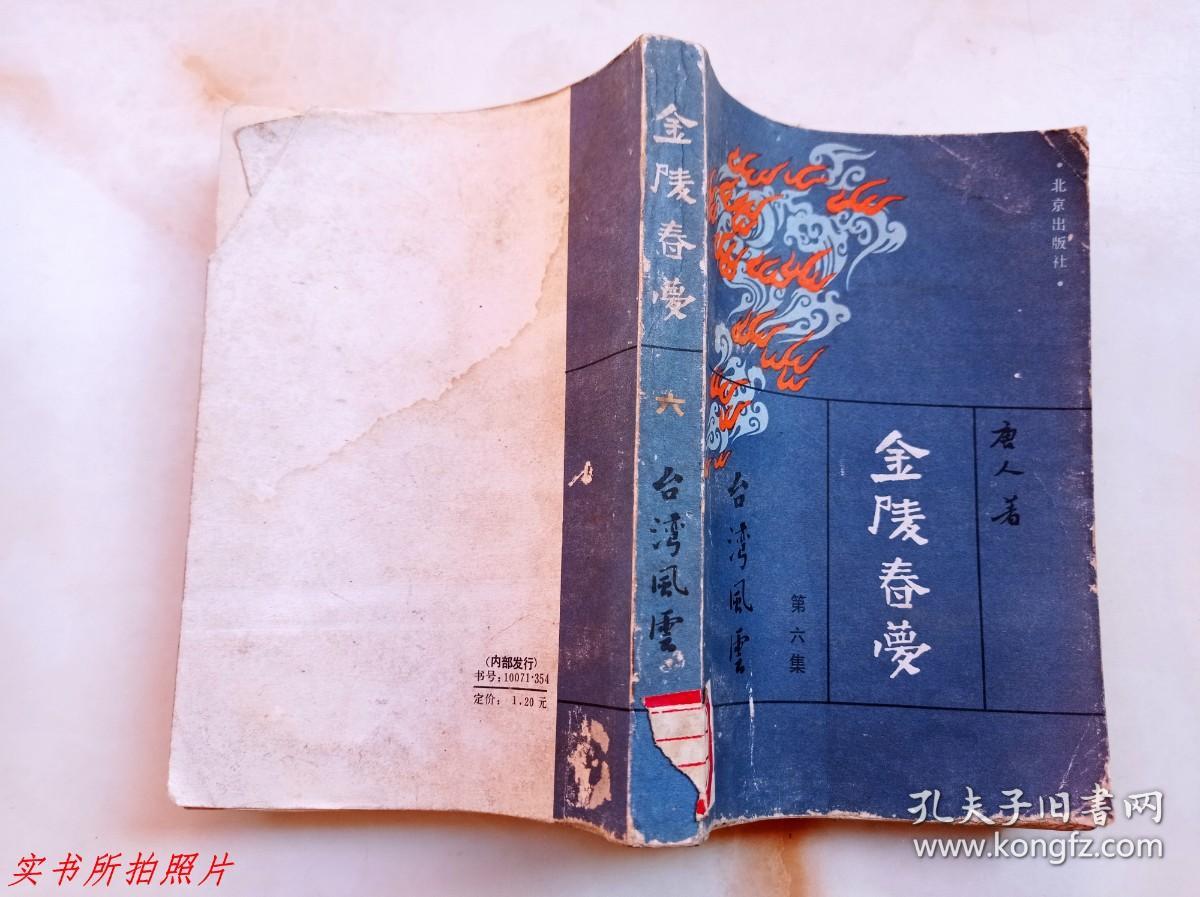 金陵春夢
六
台湾風雲
·北京出版社·
唐人著
金陵春夢
第六集
台湾風雲
(内部发行)
书号：10071·354
定价： 1.20元
实书所拍照片
孔夫子旧書网
www.kongfz.com